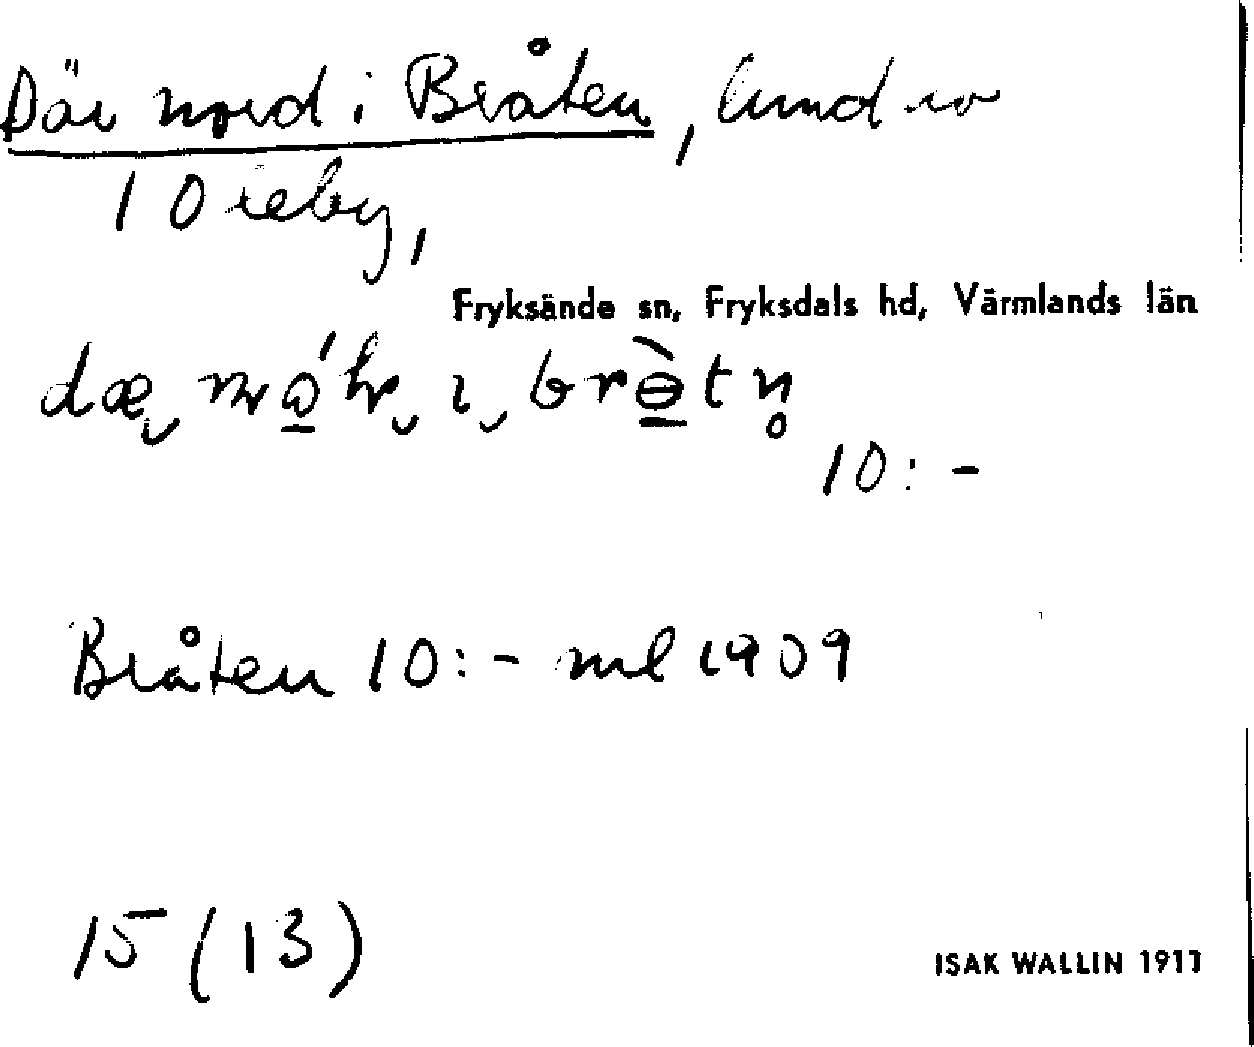 Där nord i Bråten, under
1 Oreby,
Fryksände sn, Fryksdals hd, Värmlands län
10:-
Bråten 10:- ml 1909
15 (13)
ISAK WALLIN 1911